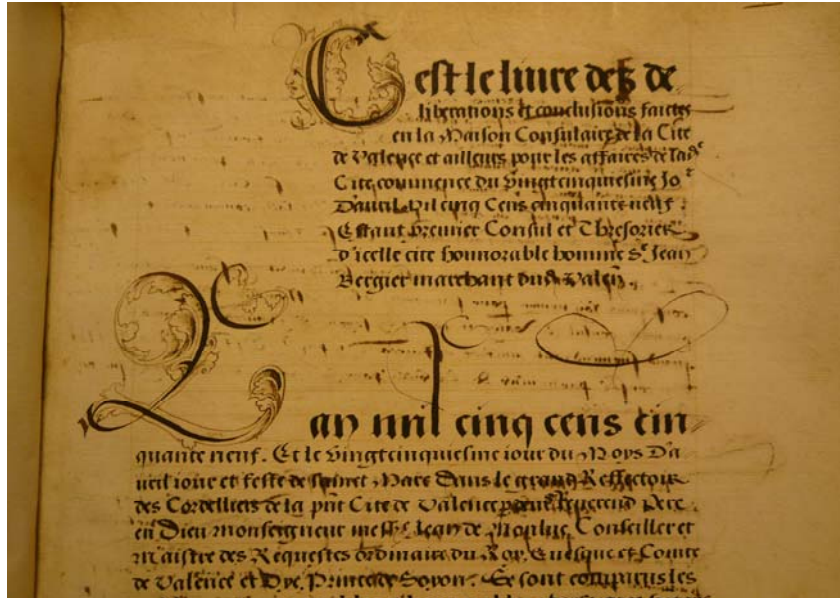 Cest le livre detz de
liberations et conclusions faictes
en la Maison Consulaire de la Cite
de Valence et ailleurs pour les affaires de lad^e
Cite commence du vingtcinquiesme Jo^r
Davril Mil cinq Cens cinquante neuf.
Estant premier Consul et Thresorier
d'icelle cite honnorable homme S^r. Jean
Bergier marchant dud. Valen
Lan mil cinq cens cin
quante neuf. Et le vingtcinquiesme jour du Moys Da
vril jour et feste de sainct Marc Dans le grand Reffectoir
des Cordelliers de la pnt Cite de Valence Reverend Pere
en Dieu monseigneur mess^e Jean de Monluc Conseiller et
Maistre des Requestes ordinaire du Roy, Evesque et Comte
de Valence et Dye, Prince de Soyon. Se sont comparus les